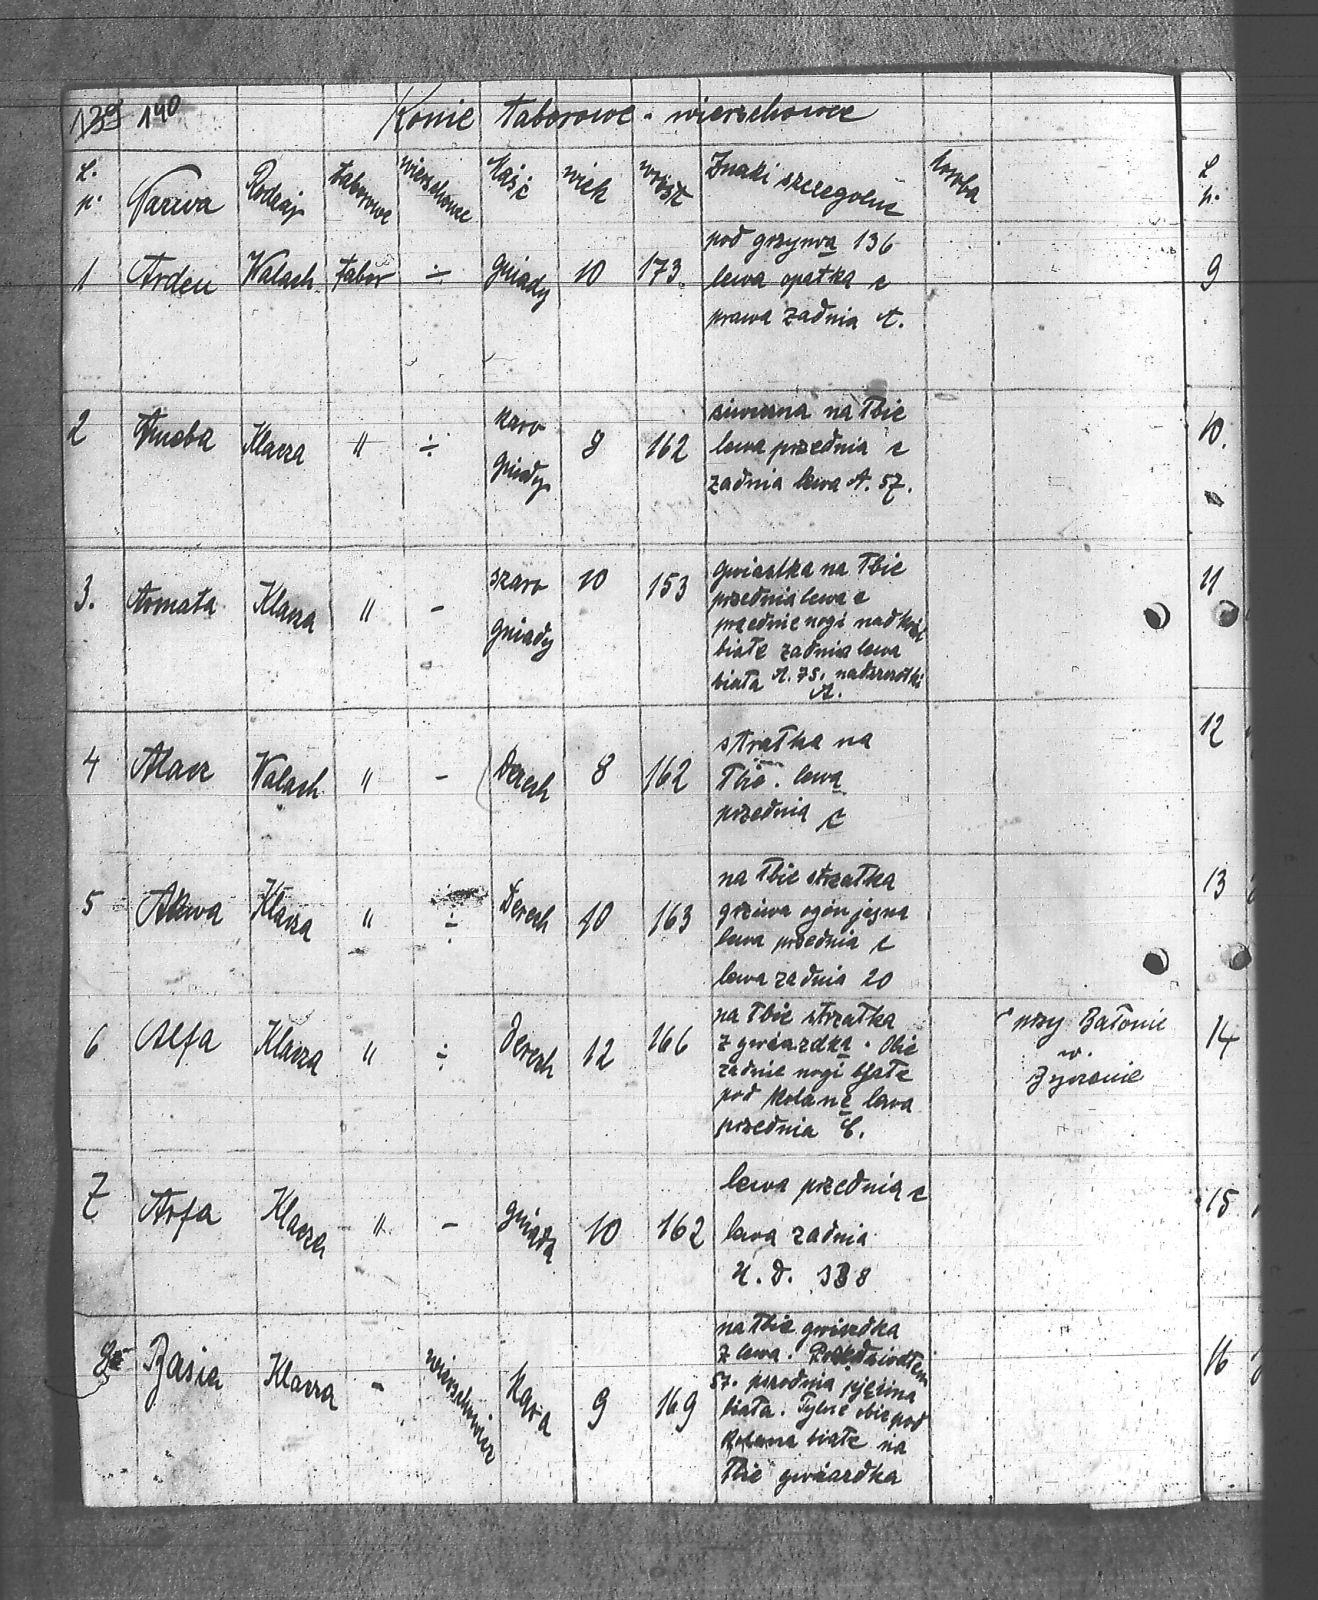 139 140 Konie taborowe - wierzchowe
L. p. Nazwa Rodzaj taborowe wierzchowe Maść wiek wzrost Znaki szczególne L p.
1 Arden Wałach tabor ÷ gniady 10 173. pod grzywą 136 9
lewa łopatka c
prawa zadnia A.
2 Klacz " ÷ karo 8 162 na łbie 10.
gniady lewa przednia c
zadnia lewa A. 57.
3. Armata Klacz " - szaro 10 153 gwiazdka na łbie 11
gniady przednia lewa c
przednie nogi nad
białe zadnia lewa
biała A. 75.
A.
4 Wałach " - Deresz 8 162 strzałka na 12
łbie. lewa
przednia c
5 Klacz " ÷ Deresz 10 163 na łbie strzałka 13
grzywa ogon jasna
lewa przednia c
lewa zadnia 20
6 Alfa Klacz " ÷ Deresz 12 166 na łbie strzałka przy 14
z gwiazdką. Obie w.
zadnie nogi białe
pod kolana lewa
przednia C.
7 Arfa Klacz " - gniada 10 162 lewa przednia c 15
lewa zadnia
8 Basia Klacz - kara 9 169 na łbie gwiazdka 16
z lewa.
57. pęcina
biała. Tylne obie pod
kolana białe na
łbie gwiazdka